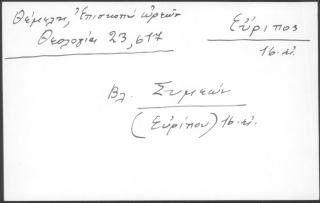 Θέμελη, Ἐπισκοπὴ Ὠρεῶν
Θεολογία 23, 617
Εὔριπος
16. αἰ.
Βλ. Συμεών
(Εὐρίπου) 16. αἰ.